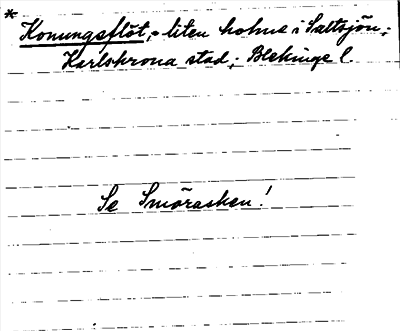 * Konungsflöt, - liten holme i Saltsjön;
Karlskrona stad; Blekinge l.
Se Smörasken!